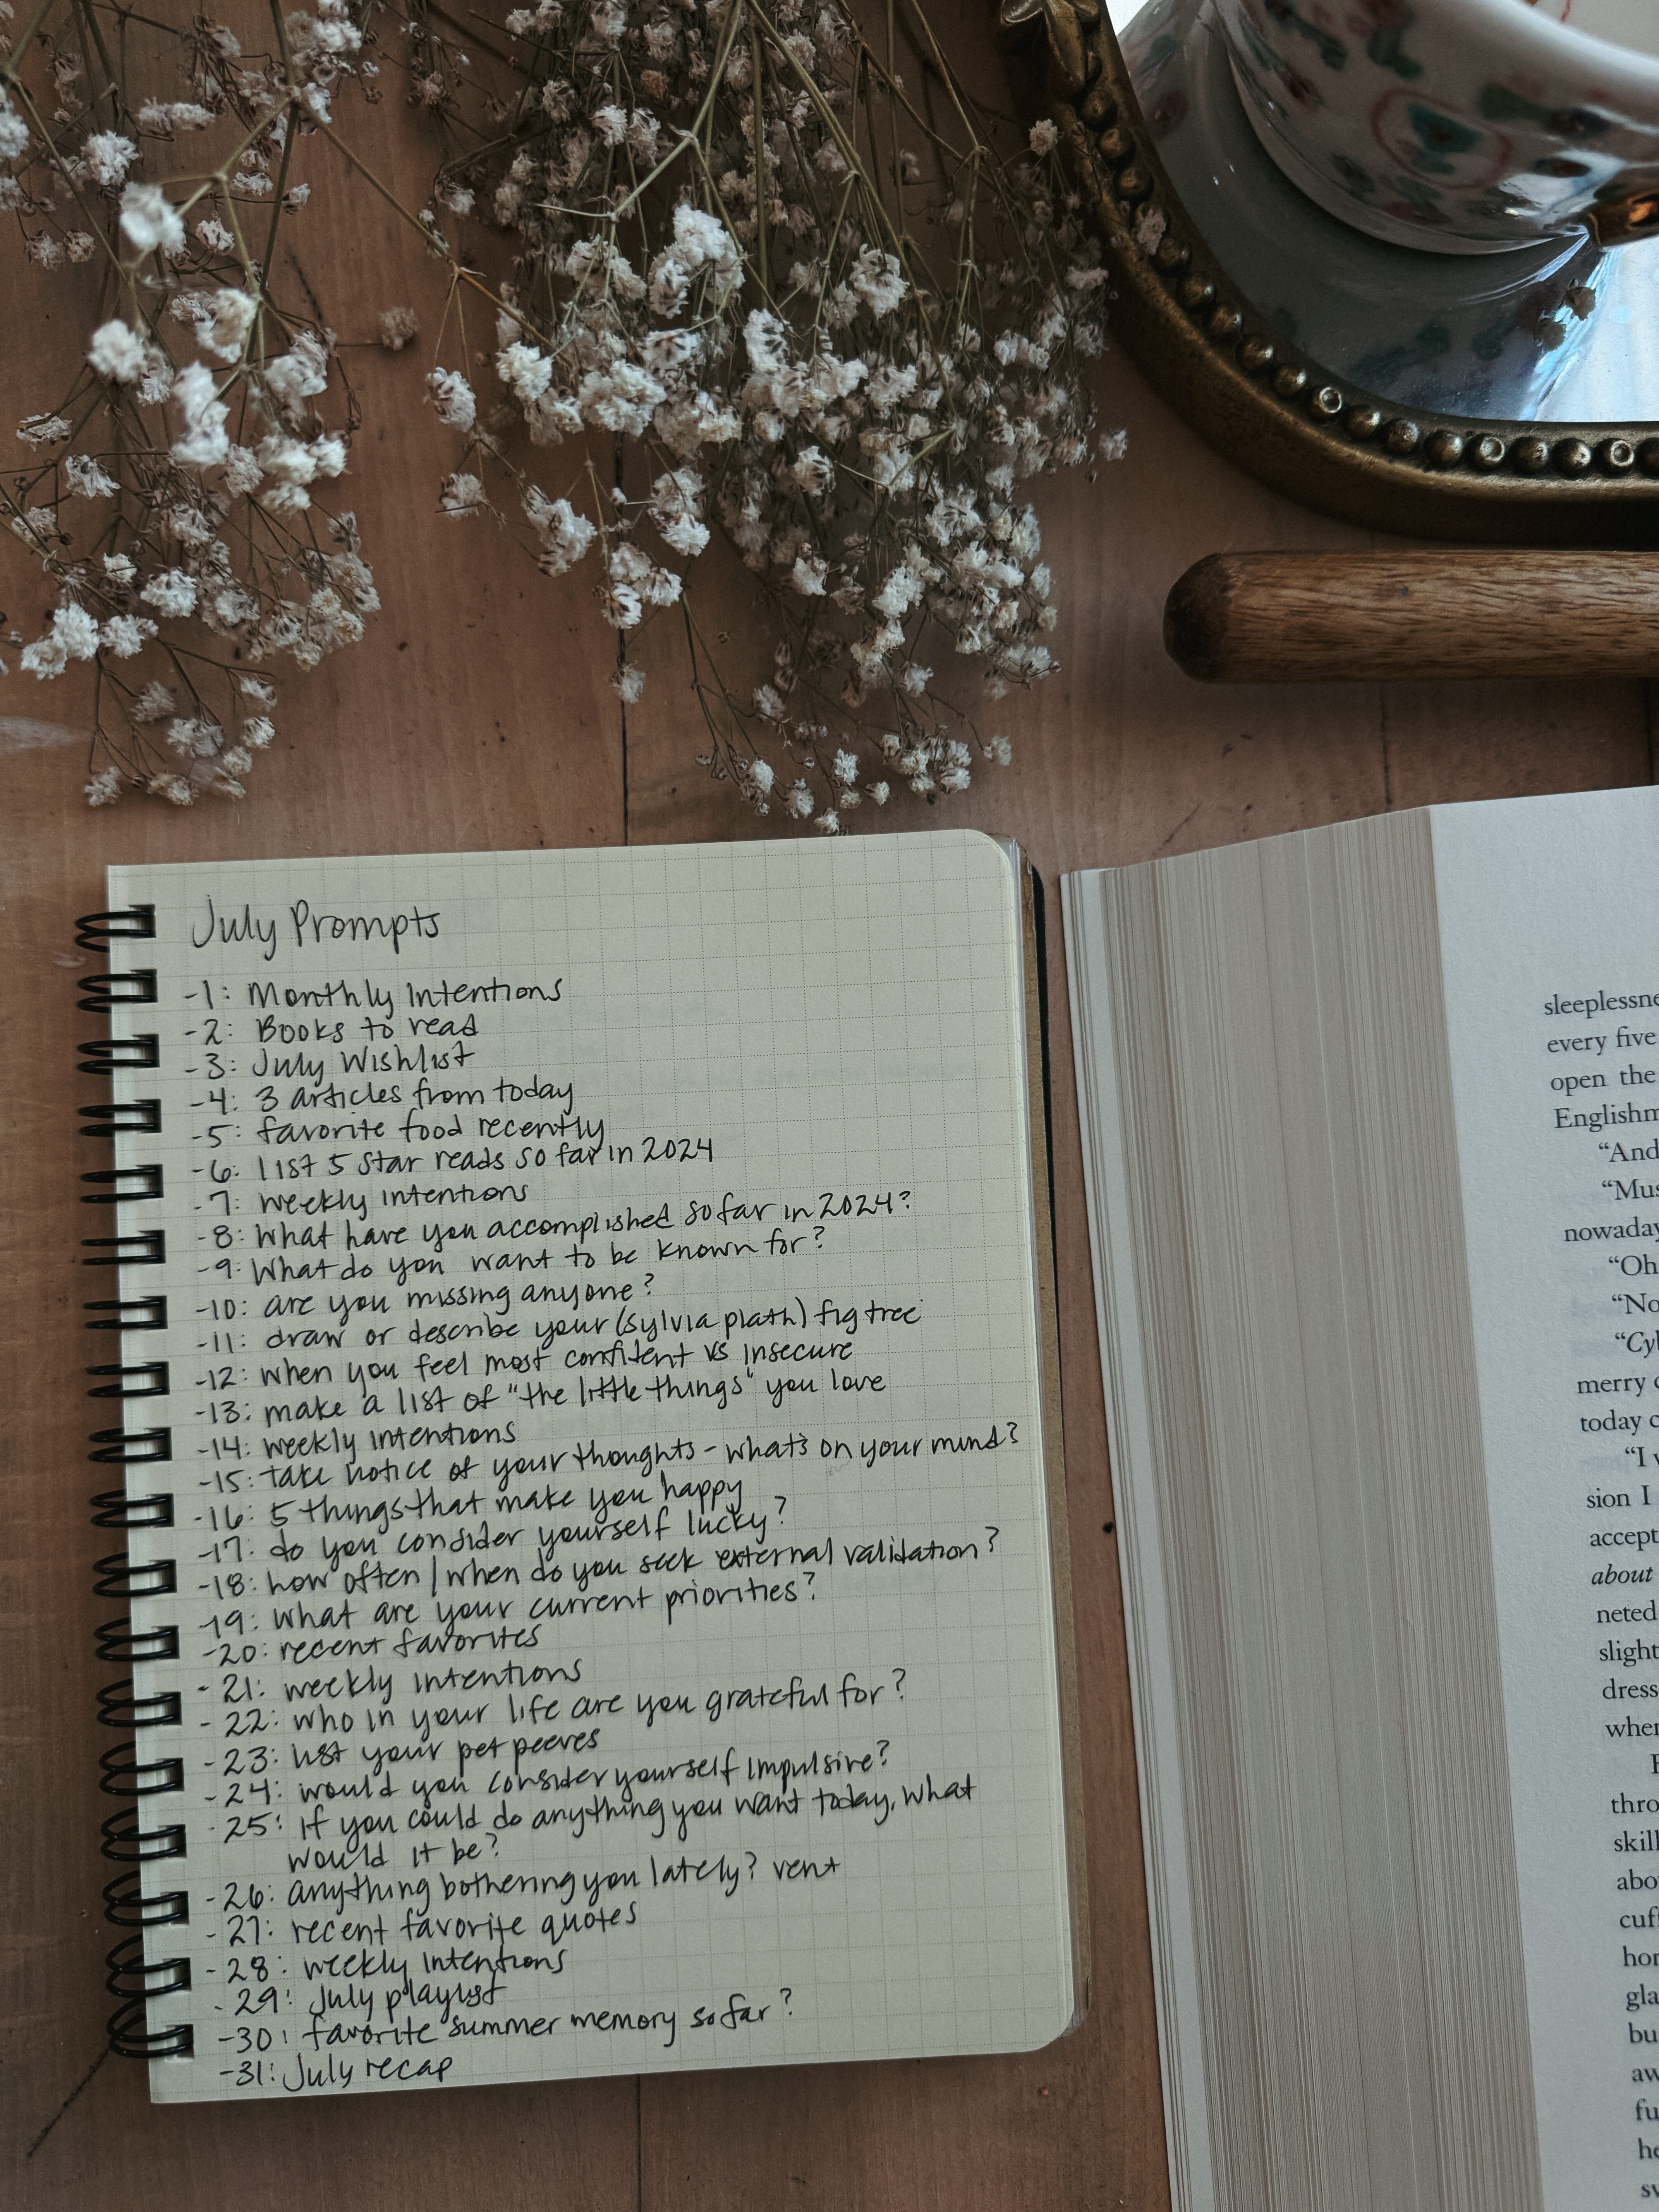 July Prompts
-1: Monthly Intentions
-2: Books to read
-3: July Wishlist
-4: 3 articles from today
-5: favorite food recently
-6: list 5 star reads so far in 2024
-7: weekly intentions
-8: what have you accomplished so far in 2024?
-9: What do you want to be known for?
-10: are you missing anyone?
-11: draw or describe your (sylvia plath) fig tree
-12: when you feel most confident vs insecure
-13: make a list of "the little things" you love
-14: weekly intentions
-15: take notice of your thoughts - what's on your mind?
-16: 5 things that make you happy
-17: do you consider yourself lucky?
-18: how often / when do you seek external validation?
-19: what are your current priorities?
-20: recent favorites
-21: weekly intentions
-22: who in your life are you grateful for?
-23: list your pet peeves
-24: would you consider yourself impulsive?
-25: if you could do anything you want today, what
would it be?
-26: anything bothering you lately? vent
-27: recent favorite quotes
-28: weekly intentions
-29: July playlist
-30: favorite summer memory so far?
-31: July recap
sleeplessne
every five
open the
Englishm
"And
"Mus
nowaday
"Oh
"No
"Cyl
merry
today c
"I
sion I
accept
about
neted
slight
dress
when
thro
skill
abo
cuf
hor
gla
bu
aw
fu
he